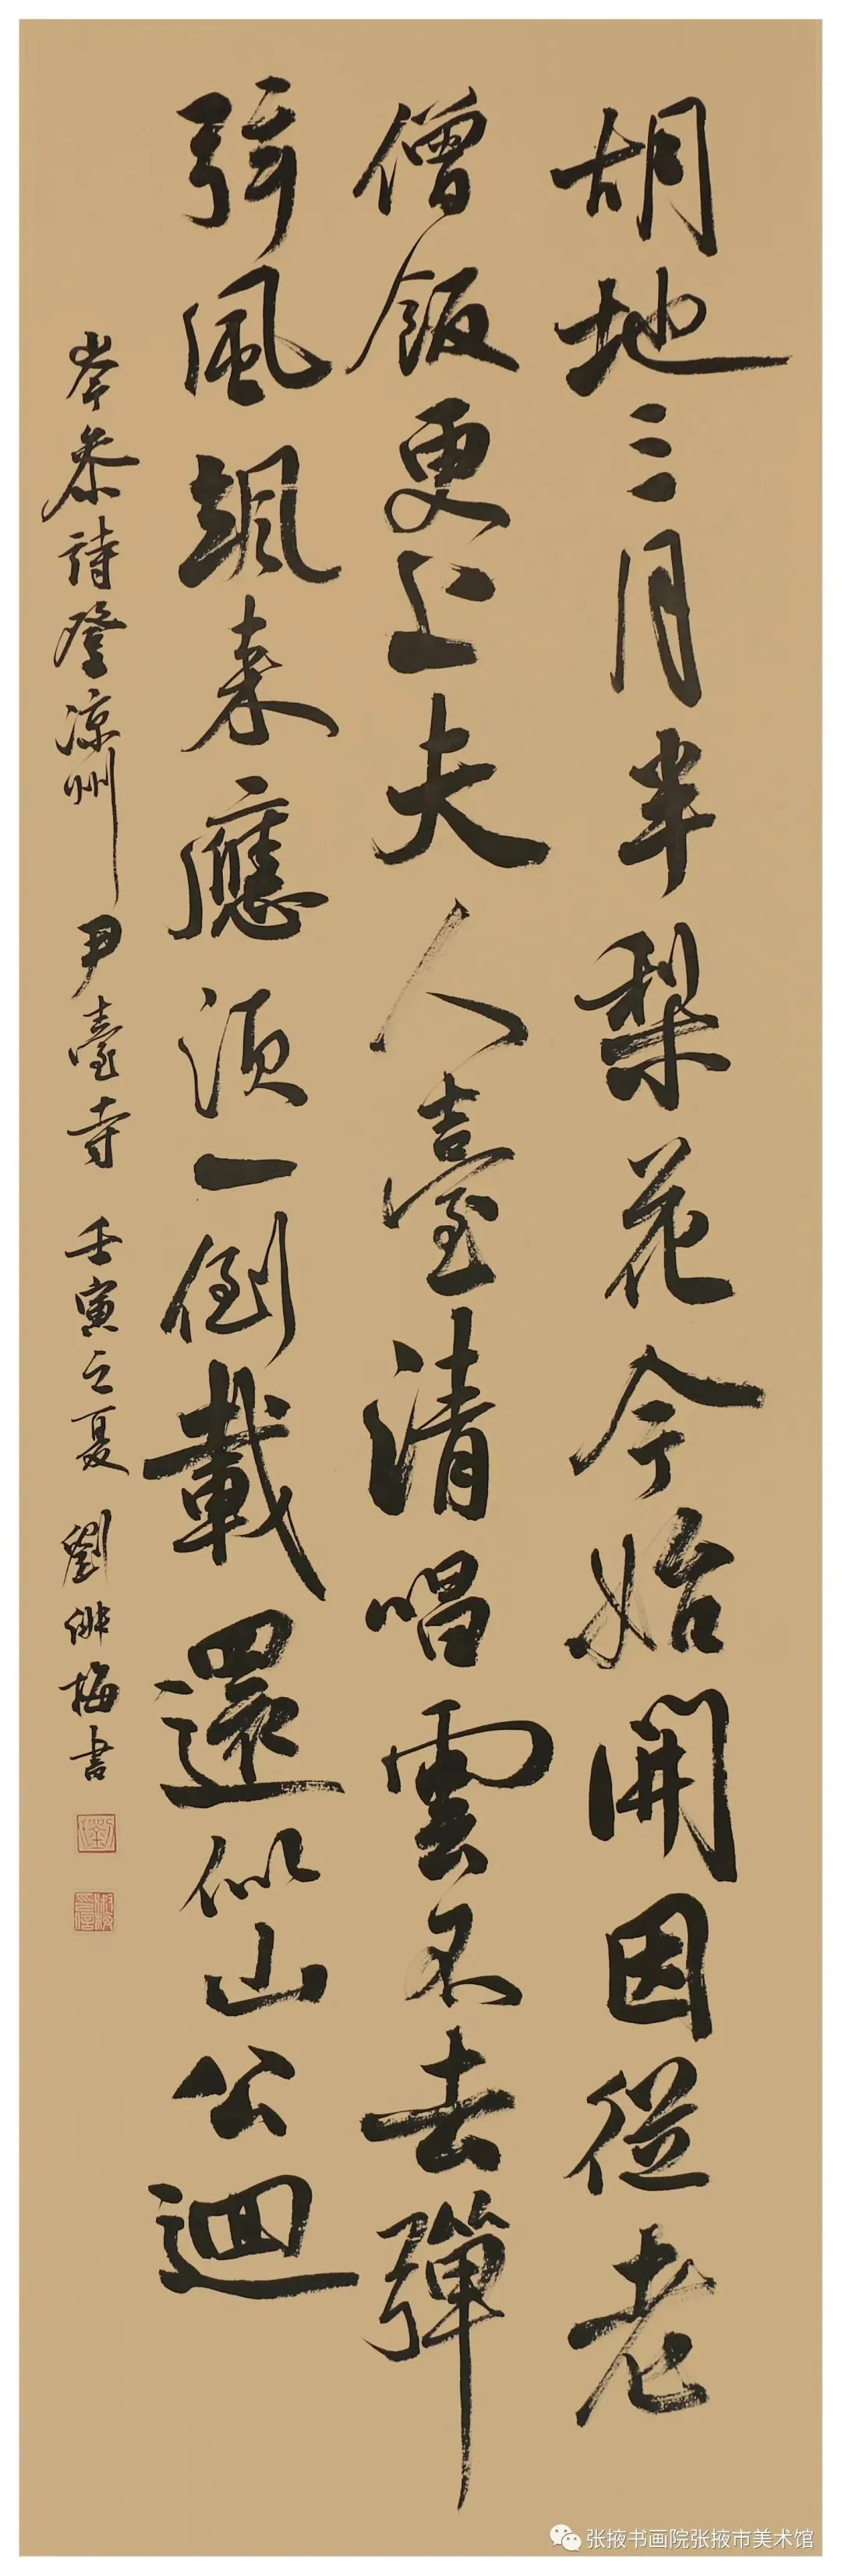 胡地三月半梨花今始開因從老
僧飯更上夫人臺清唱雲不去彈
弦風颯来應須一倒載還似山公迴
岑参詩登涼州尹臺寺 壬寅之夏 劉梅書
張掖书画院张掖市美术馆